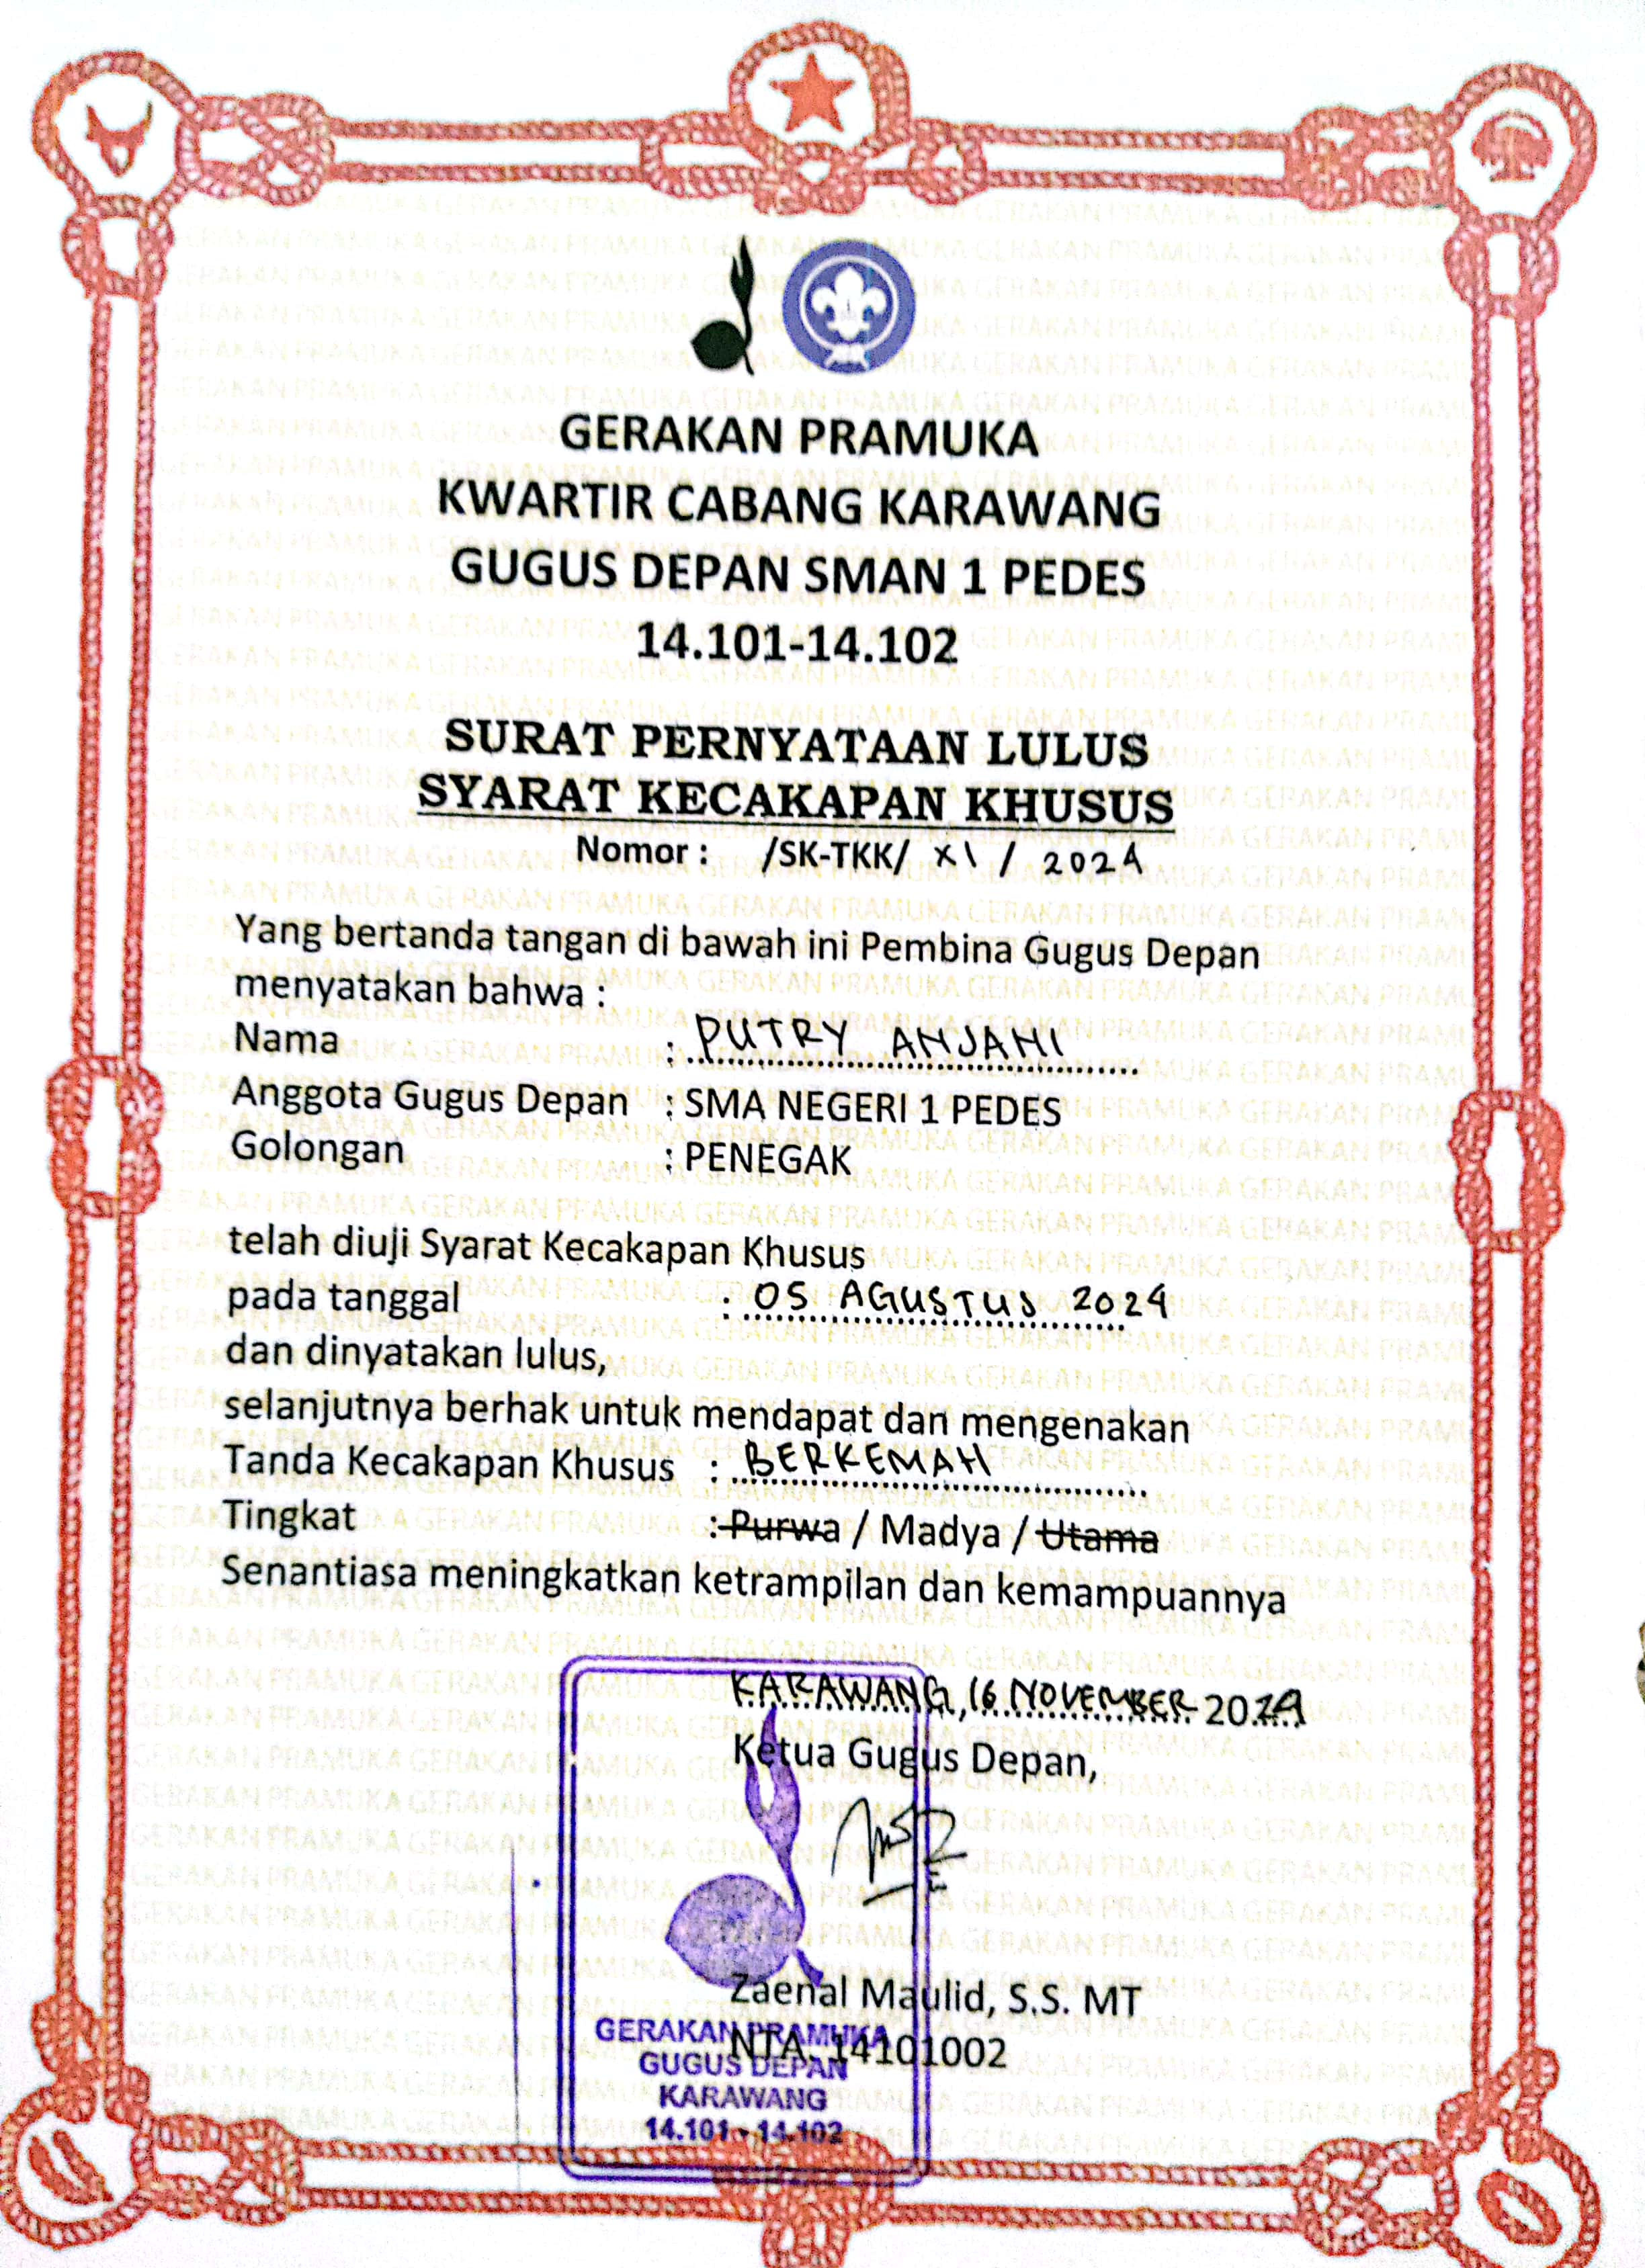 GERAKAN PRAMUKA
KWARTIR CABANG KARAWANG
GUGUS DEPAN SMAN 1 PEDES
14.101-14.102
SURAT PERNYATAAN LULUS
SYARAT KECAKAPAN KHUSUS
Nomor : /SK-TKK/ XI / 2024
Yang bertanda tangan di bawah ini Pembina Gugus Depan
menyatakan bahwa :
Nama : PUTRY ANJANI
Anggota Gugus Depan : SMA NEGERI 1 PEDES
Golongan : PENEGAK
telah diuji Syarat Kecakapan Khusus
pada tanggal : 05 AGUSTUS 2024
dan dinyatakan lulus,
selanjutnya berhak untuk mendapat dan mengenakan
Tanda Kecakapan Khusus : BERKEMAH
Tingkat : Purwa / Madya / Utama
Senantiasa meningkatkan ketrampilan dan kemampuannya
KARAWANG, 16 NOVEMBER 2024
Ketua Gugus Depan,
Zaenal Maulid, S.S. MT
NTA. 14101002
GERAKAN PRAMUKA
GUGUS DEPAN
KARAWANG
14.101 - 14.102